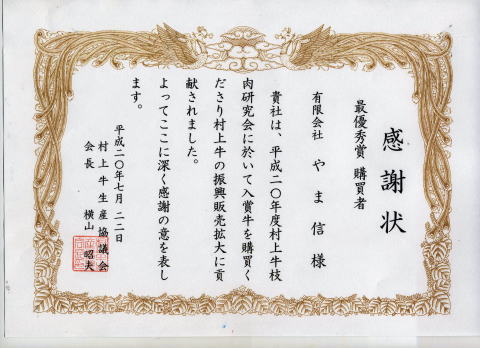 感謝状
最優秀賞 購買者
有限会社 やま信 様
貴社は、平成二〇年度村上牛枝
肉研究会に於いて入賞牛を購買く
ださり村上牛の振興販売拡大に貢
献されました。
よってここに深く感謝の意を表し
ます。
平成二〇年七月二二日
村上牛生産協議会
会長 横山 昭夫